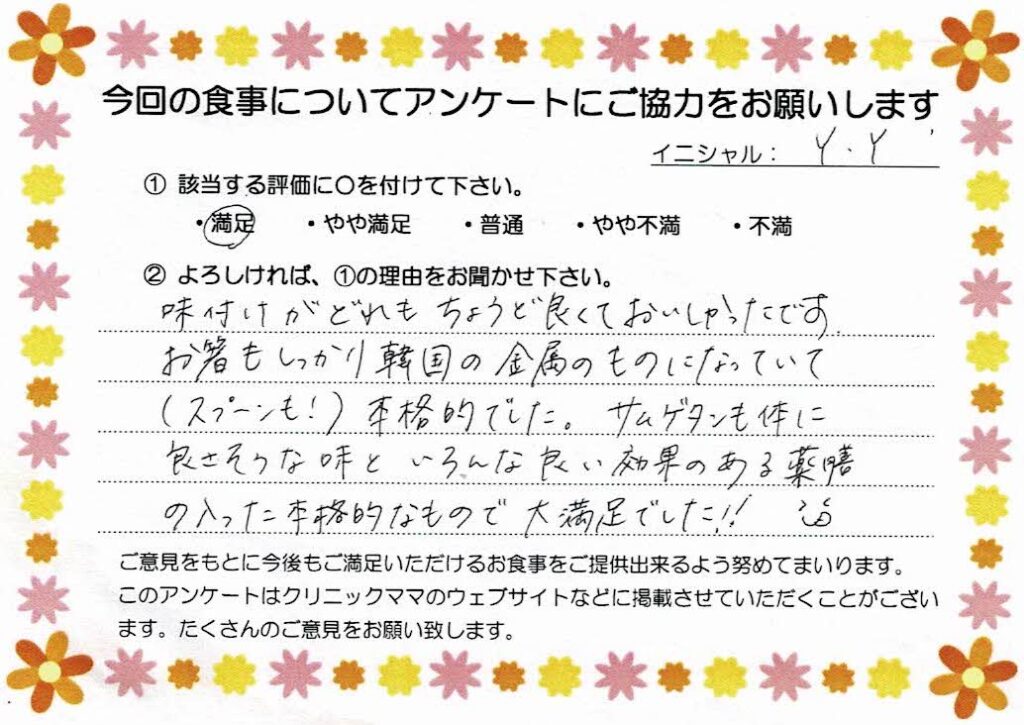 今回の食事についてアンケートにご協力をお願いします
イニシャル： Y.Y
① 該当する評価に〇を付けて下さい。
・満足 ・やや満足 ・普通 ・やや不満 ・不満
② よろしければ、①の理由をお聞かせ下さい。
味付けがどれもちょうど良くておいしかったです。
お箸もしっかり韓国の金属のものになっていて
(スプーンも!)本格的でした。サムゲタンも体に
良さそうな味といろんな良い効果のある薬膳
の入った本格的なもので大満足でした!!
ご意見をもとに今後もご満足いただけるお食事をご提供出来るよう努めてまいります。
このアンケートはクリニックママのウェブサイトなどに掲載させていただくことがござい
ます。たくさんのご意見をお願い致します。